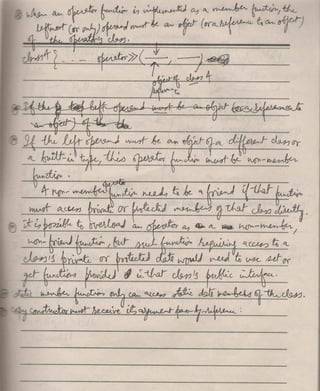 when an operator function is implemented as a member function, the
leftmost (or only) operand must be an object (or a reference to an object)
of the operator's class.
class A { ... operator>> ( , )
object of class A
If the left operand must be an object (or a reference to
an object) of the
If the left operand must be an object of a different class or
a built-in type, this operator function must be non-member
function.
A non-member function needs to be a friend if that function
must access private or protected members of that class directly.
it is possible to overload an operator as a non-member,
non-friend function but such function requiring access to a
class's private or protected data would need to use set or
get functions provided in that class's public interface.
static member function only can access static data members of the class.
copy constructor must receive its argument by reference :